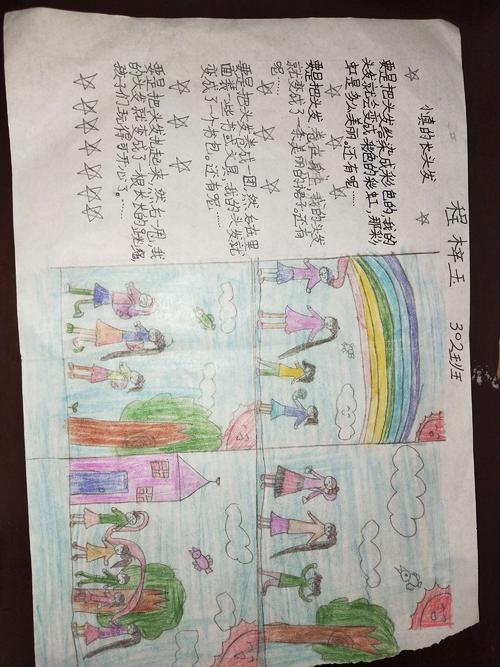 程梓玉 302班
小真的长头发
要是把头发给染成彩色的,我的
头发就会变成彩色的彩虹,那彩
虹是多么美丽。还有呢……
要是把头发卷在身上,我的头发
就变成了一条美丽的裙子。还有
呢……
要是把头发卷成一团,然后在里
面装一些书或文具,我的头发就
变成了一个书包。还有呢……
要是把头发扎起来,然后一甩,我
的头发就变成了一根长长的跳绳,
孩子们玩得可开心了。……